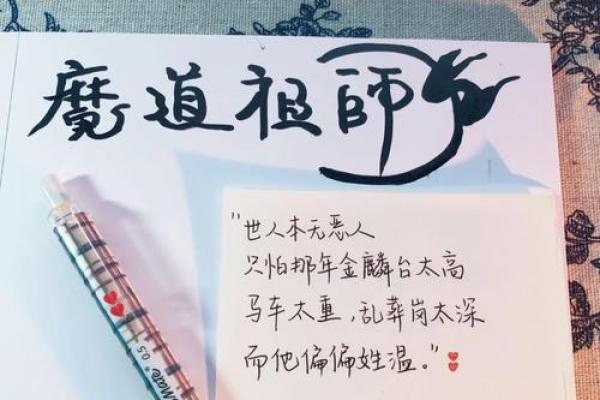 魔道祖師
"世人本无恶人
只怕那年金麟台太高
马车太重，乱葬岗太深
而他偏偏姓温。"
Mate® 0.5